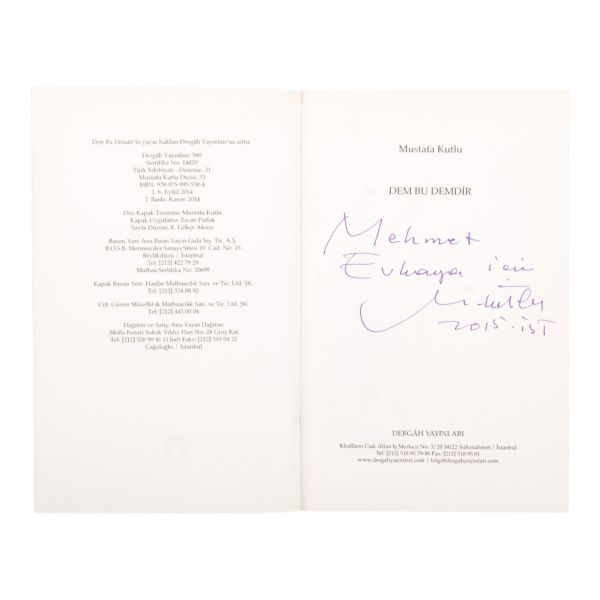 Dem Bu Demdir'in yayın hakları Dergâh Yayınları'na aittir.
Dergâh Yayınları: 580
Sertifika No: 14420
Türk Edebiyatı - Deneme: 51
Mustafa Kutlu Dizisi: 33
ISBN: 978-975-995-530-4
1. b. Eylül 2014
2. Baskı: Kasım 2014
Dizi Kapak Tasarımı: Mustafa Kutlu
Kapak Uygulama: Ercan Patlak
Sayfa Düzeni: E. Gökçe Aksoy
Basım Yeri: Ana Basın Yayın Gıda İnş. Tic. A.Ş.
B.O.S.B. Mermerciler Sanayi Sitesi 10. Cad. No: 15
Beylikdüzü / İstanbul
Tel: [212] 422 79 29
Matbaa Sertifika No: 20699
Kapak Basım Yeri: Hazlar Matbaacılık San. ve Tic. Ltd. Şti.
Tel: [212] 324 08 82
Cilt: Güven Mücellit & Matbaacılık San. ve Tic. Ltd. Şti.
Tel: [212] 445 00 04
Dağıtım ve Satış: Ana Yayın Dağıtım
Molla Fenari Sokak Yıldız Han No: 28 Giriş Kat
Tel: [212] 526 99 41 (3 hat) Faks: [212] 519 04 21
Cağaloğlu / İstanbul
Mustafa Kutlu
DEM BU DEMDİR
Mehmet
Evkaya için
M. Kutlu
2015.İST
DERGÂH YAYINLARI
Klodfarer Cad. Altan İş Merkezi No: 3/20 34122 Sultanahmet / İstanbul
Tel: [212] 518 95 79-80 Fax: [212] 518 99 81
www.dergahyayinlari.com / bilgi@dergahyayinlari.com